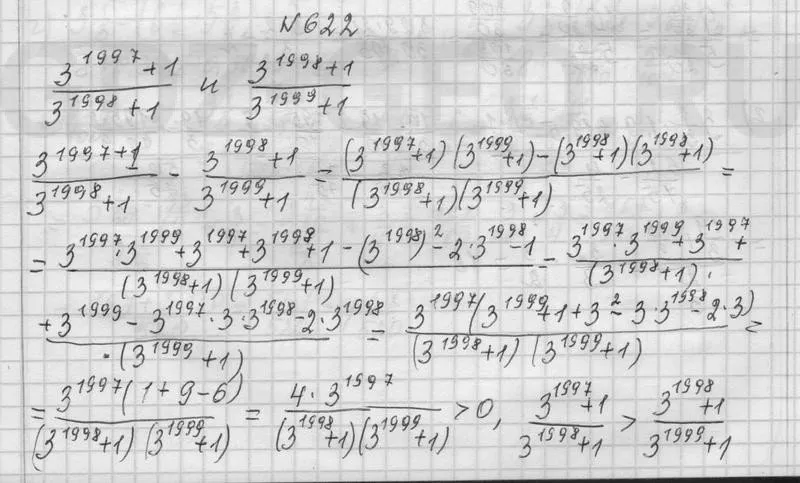 N622
\frac{3^{1997}+1}{3^{1998}+1} и \frac{3^{1998}+1}{3^{1999}+1}
\frac{3^{1997}+1}{3^{1998}+1} - \frac{3^{1998}+1}{3^{1999}+1} = \frac{(3^{1997}+1)(3^{1999}+1)-(3^{1998}+1)(3^{1998}+1)}{(3^{1998}+1)(3^{1999}+1)} =
= \frac{3^{1997} \cdot 3^{1999}+3^{1997}+3^{1998}+1-(3^{1998})^2-2 \cdot 3^{1998}-1}{(3^{1998}+1)(3^{1999}+1)} = \frac{3^{1997} \cdot 3^{1999}+3^{1997}+}{(3^{1998}+1) \cdot}
\frac{+3^{1999}-3^{1997} \cdot 3 \cdot 3^{1998}-2 \cdot 3^{1998}}{\cdot (3^{1999}+1)} = \frac{3^{1997}(3^{1999}+1+3^2-3 \cdot 3^{1998}-2 \cdot 3)}{(3^{1998}+1)(3^{1999}+1)} =
= \frac{3^{1997}(1+9-6)}{(3^{1998}+1)(3^{1999}+1)} = \frac{4 \cdot 3^{1997}}{(3^{1998}+1)(3^{1999}+1)} > 0, \frac{3^{1997}+1}{3^{1998}+1} > \frac{3^{1998}+1}{3^{1999}+1}